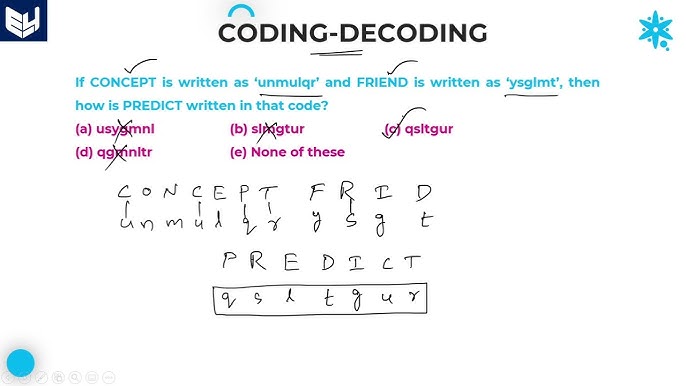 EH
CODING-DECODING
If CONCEPT is written as ‘unmulqr’ and FRIEND is written as ‘ysglmt’, then
how is PREDICT written in that code?
(a) usygmnl (b) slmgtur (c) qsltgur
(d) qgmnltr (e) None of these
C O N C E P T F R I D
u n m u l q r y s g t
P R E D I C T
q s l t g u r